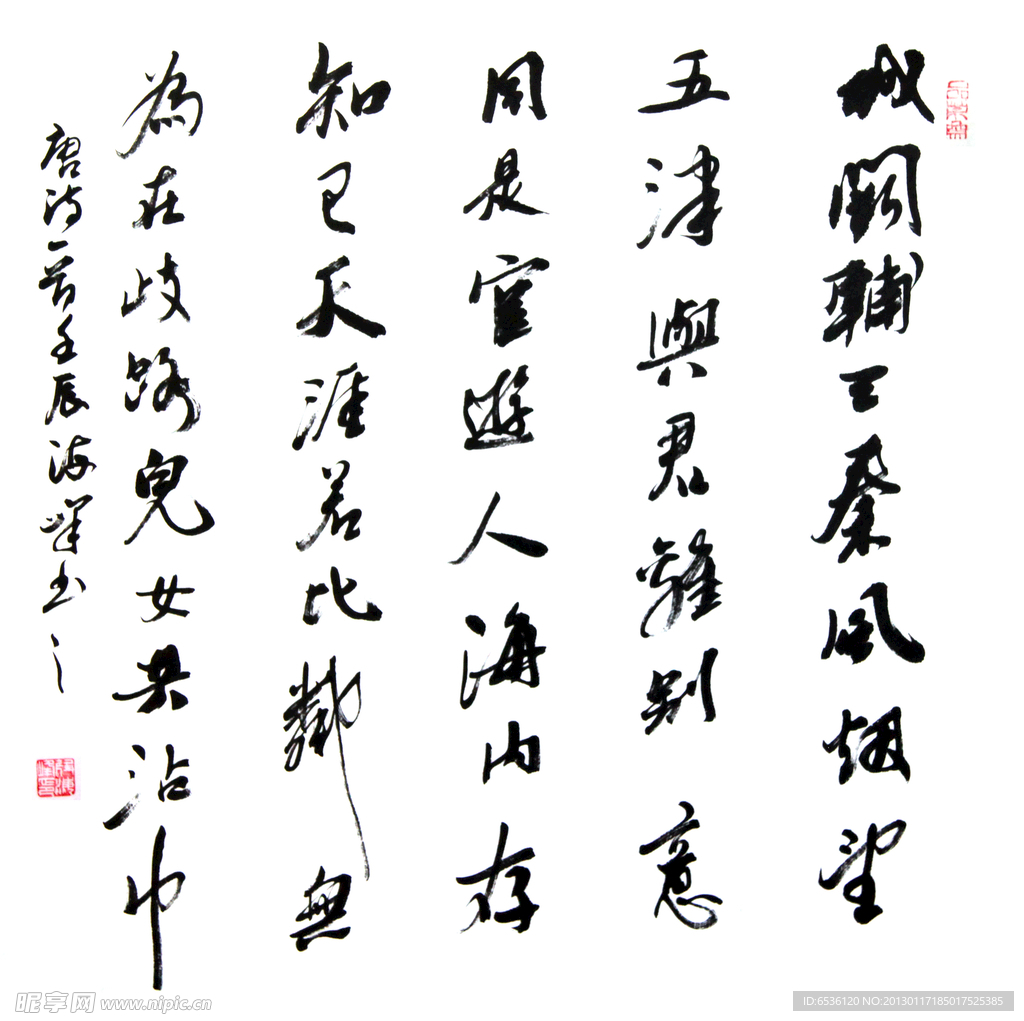 城闕輔三秦風烟望
五津與君離别意
同是宦遊人海内存
知己天涯若比鄰無
為在歧路兒女共沾巾
唐诗一首壬辰海峰书之
昵享网 www.nipic.cn
ID:6536120 NO:20130117185017525385